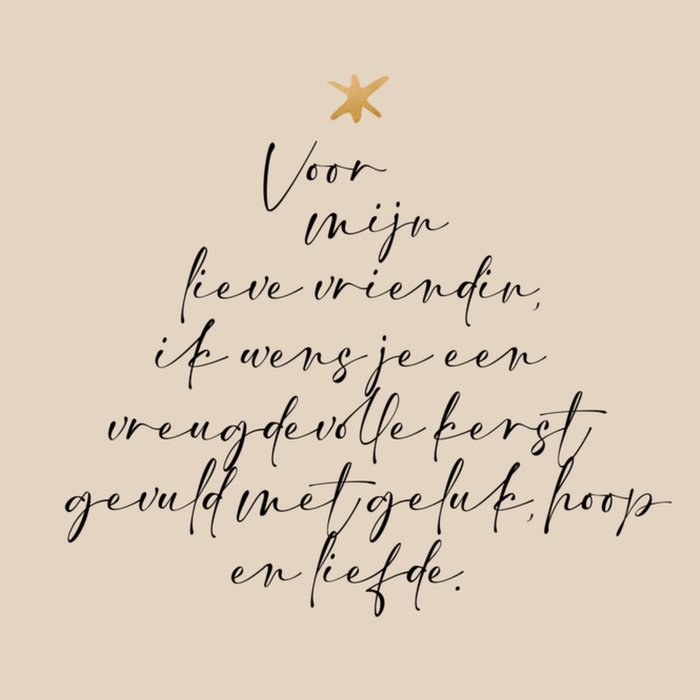 Voor
mijn
lieve vriendin,
ik wens je een
vreugdevolle kerst
gevuld met geluk, hoop
en liefde.